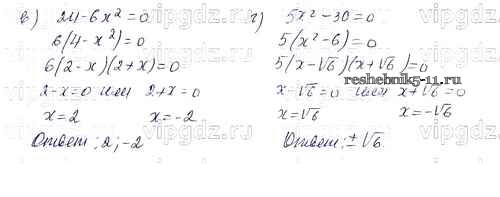 в) 24-6x²=0
6(4-x²)=0
6(2-x)(2+x)=0
2-x=0 или 2+x=0
x=2 x=-2
Ответ: 2; -2
г) 5x²-30=0
5(x²-6)=0
5(x-√6)(x+√6)=0
x-√6=0 или x+√6=0
x=√6 x=-√6
Ответ: ±√6
reshebnik5-11.ru
vipgdz.ru